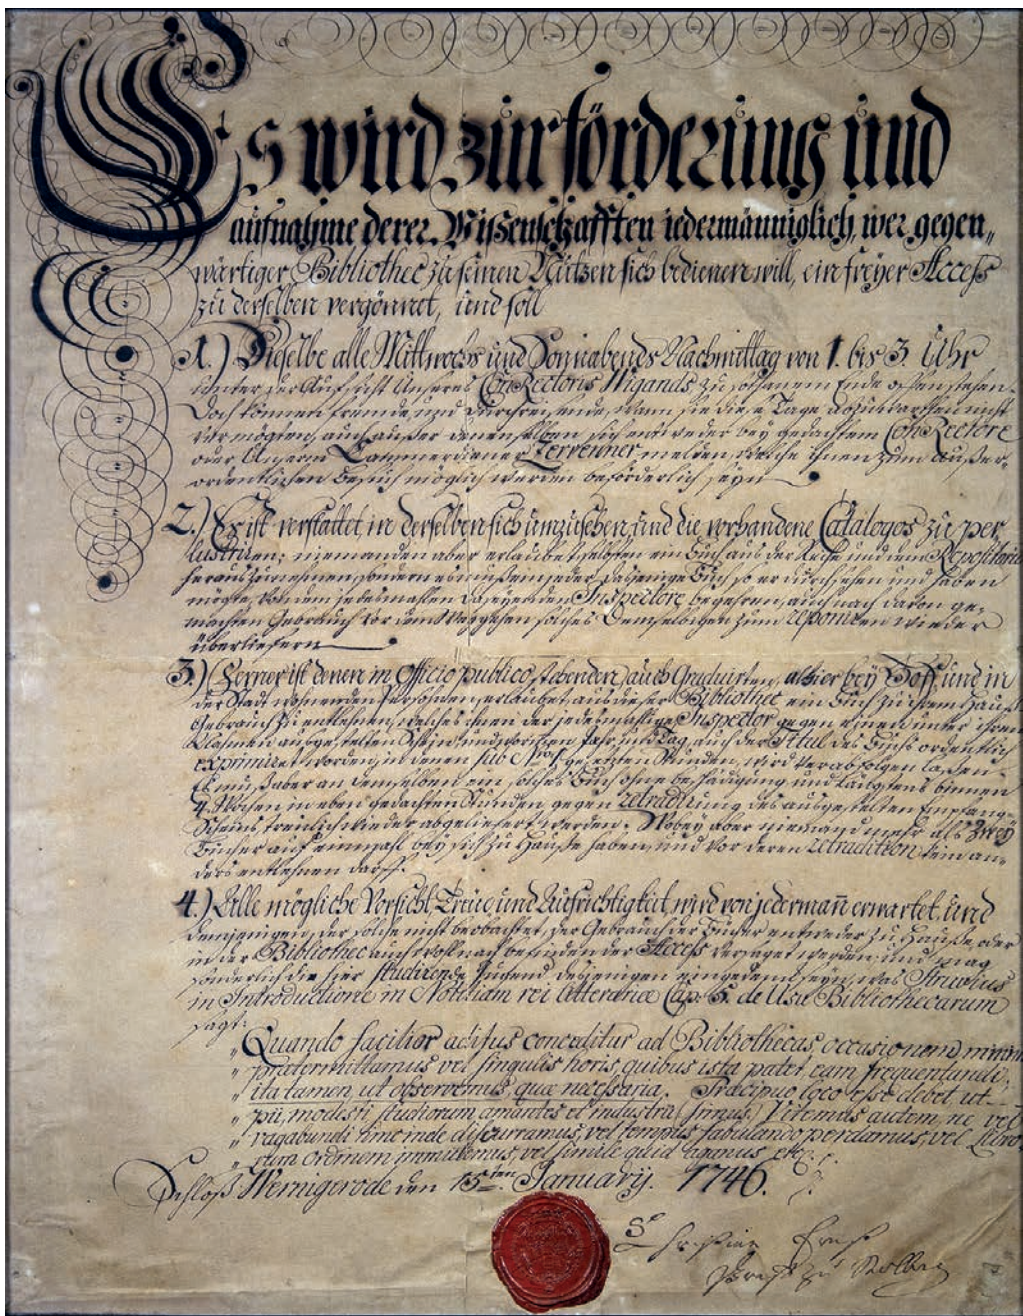 Es wird zur förderung und
aufnahme derer Wißenschafften iedermänniglich, wer gegen„
wärtiger Bibliothec zu seinen Nutzen sich bedienen will, ein freyer Access
zu derselben vergönnet, und soll
1.) Dieselbe alle Mittwochs und Sonnabends Nachmittag von 1. bis 3. Uhr
unter der Aufsicht Unseres ConRectoris Wigands zu solchem Ende offen stehen.
Doch können fremde und durchreisende, wann sie diese Tage abzuwarthen nicht
vermögten, auch außer denenselben sich entweder bey gedachtem ConRectore
oder Unserm Cammerdiener Zervenner melden, welche ihnen zum außer-
ordentlichen Besuch möglich werden beförderlich seyn
2.) Es ist verstattet, in derselben sich umzusehen, und die vorhandene Catalogos zu per
lustriren; niemanden aber erlaubet, selbsten ein Buch aus der Reihe und den Repositoriis
herauszunehmen, sondern es muß ein jeder dasjenige Buch so er durchsehen und haben
mögte, von dem jedesmahlen daseyenden Inspectore begehren, auch nach davon ge-
machten Gebrauch vor dem Weggehen solches demselbigen zum reponiren wieder
überliefern
3.) Ferner ist denen in Officio publico stehenden, auch Graduirten, alhier bey Hoff und in
der Stadt wohnenden Persohnen erlaubet, aus dieser Bibliothec ein Buch zu ihrem Hauß
Gebrauch zu entlehnen, welches ihnen der jedesmahlige Inspector gegen einen unter ihrem
Nahmen ausgestelten Schein, und worinnen Jahr und Tag, auch der Titul des Buchs ordentlich
exprimiret worden, in denen sub No. 1. gesetzten Stunden, wird verabfolgen laßen.
Es muß aber an demselben ein solches Buch ohne beschädigung und längstens binnen
4. Wochen in eben gedachten Stunden gegen retradirung des ausgestelten Empfang-
Scheins treulich wieder abgeliefert werden. Wobey aber niemand mehr als zwey
Bücher auf einmahl bey sich zu Hauße haben, und vor deren retradition kein an-
ders entlehnen darff.
4.) Alle mögliche Vorsicht, Treue, und Aufrichtigkeit, wird von jedermann erwartet, und
demjenigen, der solche nicht beobachtet, der Gebrauch der Bücher entweder zu Hauße, oder
in der Bibliothec auch wohl nach befinden der Access versaget werden, und mag
sonderlich die hier studirende Jugend desjenigen eingedenck seyn, was Struvius
in Introductione in Notitiam rei litterariæ Cap. 5. de Usu Bibliothecarum
sagt:
„Quando facilior aditus conceditur ad Bibliothecas, occasionem
„prætermittamus vel singulis horis, quibus ista patet eam frequentandi,
„ita tamen, ut observemus, quæ necessaria. Præcipuo loco esse debet ut
„pii, modesti, studiorum amantes et industrii simus. Vitemus autem, ne vel
„vagabundi hinc inde discurramus, vel tempus fabulando perdamus, vel libro-
„rum ordinem immutemus, vel simile quid agamus, etc.
Schloß Wernigerode den 15ten January. 1746.
Christian Ernst
Graf zu Stolberg